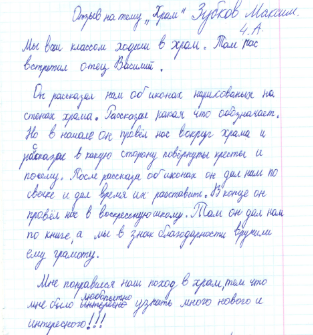 Отзыв на тему „Храм" Зубков Максим.
4.А
Мы всем классом ходили в храм. Там нас
встретил отец Василий.
Он рассказал нам об иконах нарисованых на
стенах храма. Рассказал какая что обозначает.
Но в начале он провёл нас вокруг храма и
рассказал в какую сторону повёрнуты кресты и
почему. После рассказа об иконах он дал нам по
свечке и дал время их расставить. В конце он
провёл нас в воскресную школу. Там он дал нам
по книге, а мы в знак благодарности вручили
ему грамоту.
Мне понравился наш поход в храм, тем что
мне было любопытно узнать много нового и
интересного!!!